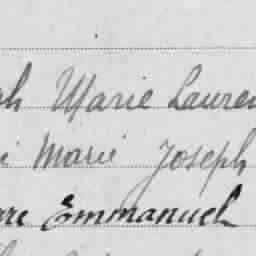 ph Marie Lauren
i Marie Joseph
re Emmanuel